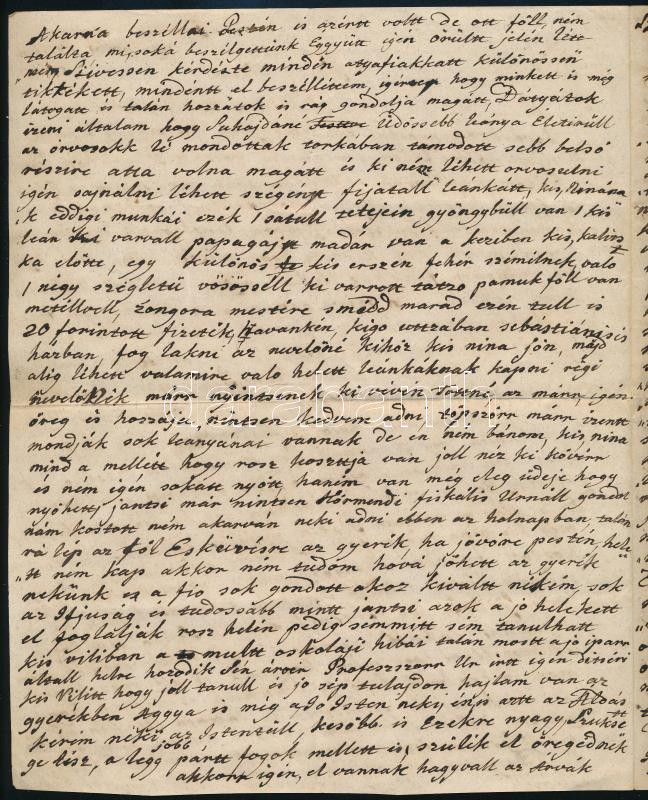 Akarna beszéllni Pestén is azértt voltt de ott föll ném
találta mi, soká beszélgettünk Eggyütt igén örültt jelén létt
"nem Szivessen kérdézte mindén atyafiakkatt különössen
tiktékett, mindentt el beszélléttem, igérte hogy minkett is még
látogatt is talán hozzátok is rág gondolja magátt, Dátyátok
izeni általam hogy Suhajdáné Üdössebb leánya Eletirüll
az orvosokk lé mondottak torkában támodott sebb belső
részire atta volna magátt és ki ném léhett orvosolni
igén sajnálni léhett szégényt fijatall leánkátt, kis, Ninána
"k eddigi munkái ezék 1 sátull tetejein gyöngybüll van 1 kis
leán ki varvall papagájt madár van a keziben kis, kalits
ka előtte, egy különös kis erszén fehér szémilnek való
1 négy szégletü vörösséll ki varrott tátzo pamuk föll van
météllvell, zongora mestére smédd marad ezén tull is
20 forintott fizeték, havankén, kigo uttzában sebastiánisis
házban, fog lakni az nevelőné kihöz kis nina jön, májd
alig léhett valamire való helett leánkáknak kaponi régi
nevelőéik márr nyointsenek ki vévén Tottné, az márr, igén
öreg is hoszája, nintsen kedvem adni, többször márr izentt
mondják sok leanyánai vannak de én ném bánom, kis, nina
mind a mellétt hogy rosz kosztja van joll néz ki kövérr
és ném igén sokatt nyött haném van még elég üdeje hogy
nyöhett, jantsi már nintsen Körmendi fiskális Urnáll gondol
nám kostott ném akarván neki adni ebben az holnapban, talán
rá lép az föl Eskévvésre az gyerik, ha jövőre pestén, hele
"tt ném kap akkor ném tudom hová jöhett az gyerik
nekünk ez a fio sok gondott okoz kiváltt nékém, sok
az Ifjuság is tudossabb mintt jantsi azok a jo helekett
el foglalják rosz helén pedig sémmitt sém tanulhatt
kis viliben a multt oskoláji hibái talán mostt a jo iparr
általl helre hozodik Sén árosr Professzorr Ur irtt igén ditséri
kis Vilitt hogy joll tanull is jo szép tulajdon, hajlam van az
gyerékben Aggya is még a Jo Isten neki, én is aztt az Áldás
kérim nékie az Istentüll, később is Ezekre nyagy, Szüksé
ge lész, a légg jobb pártt fogok mellett is, szülék el örögédnék
akkorr igén, el vannak hagyvall az Árvák